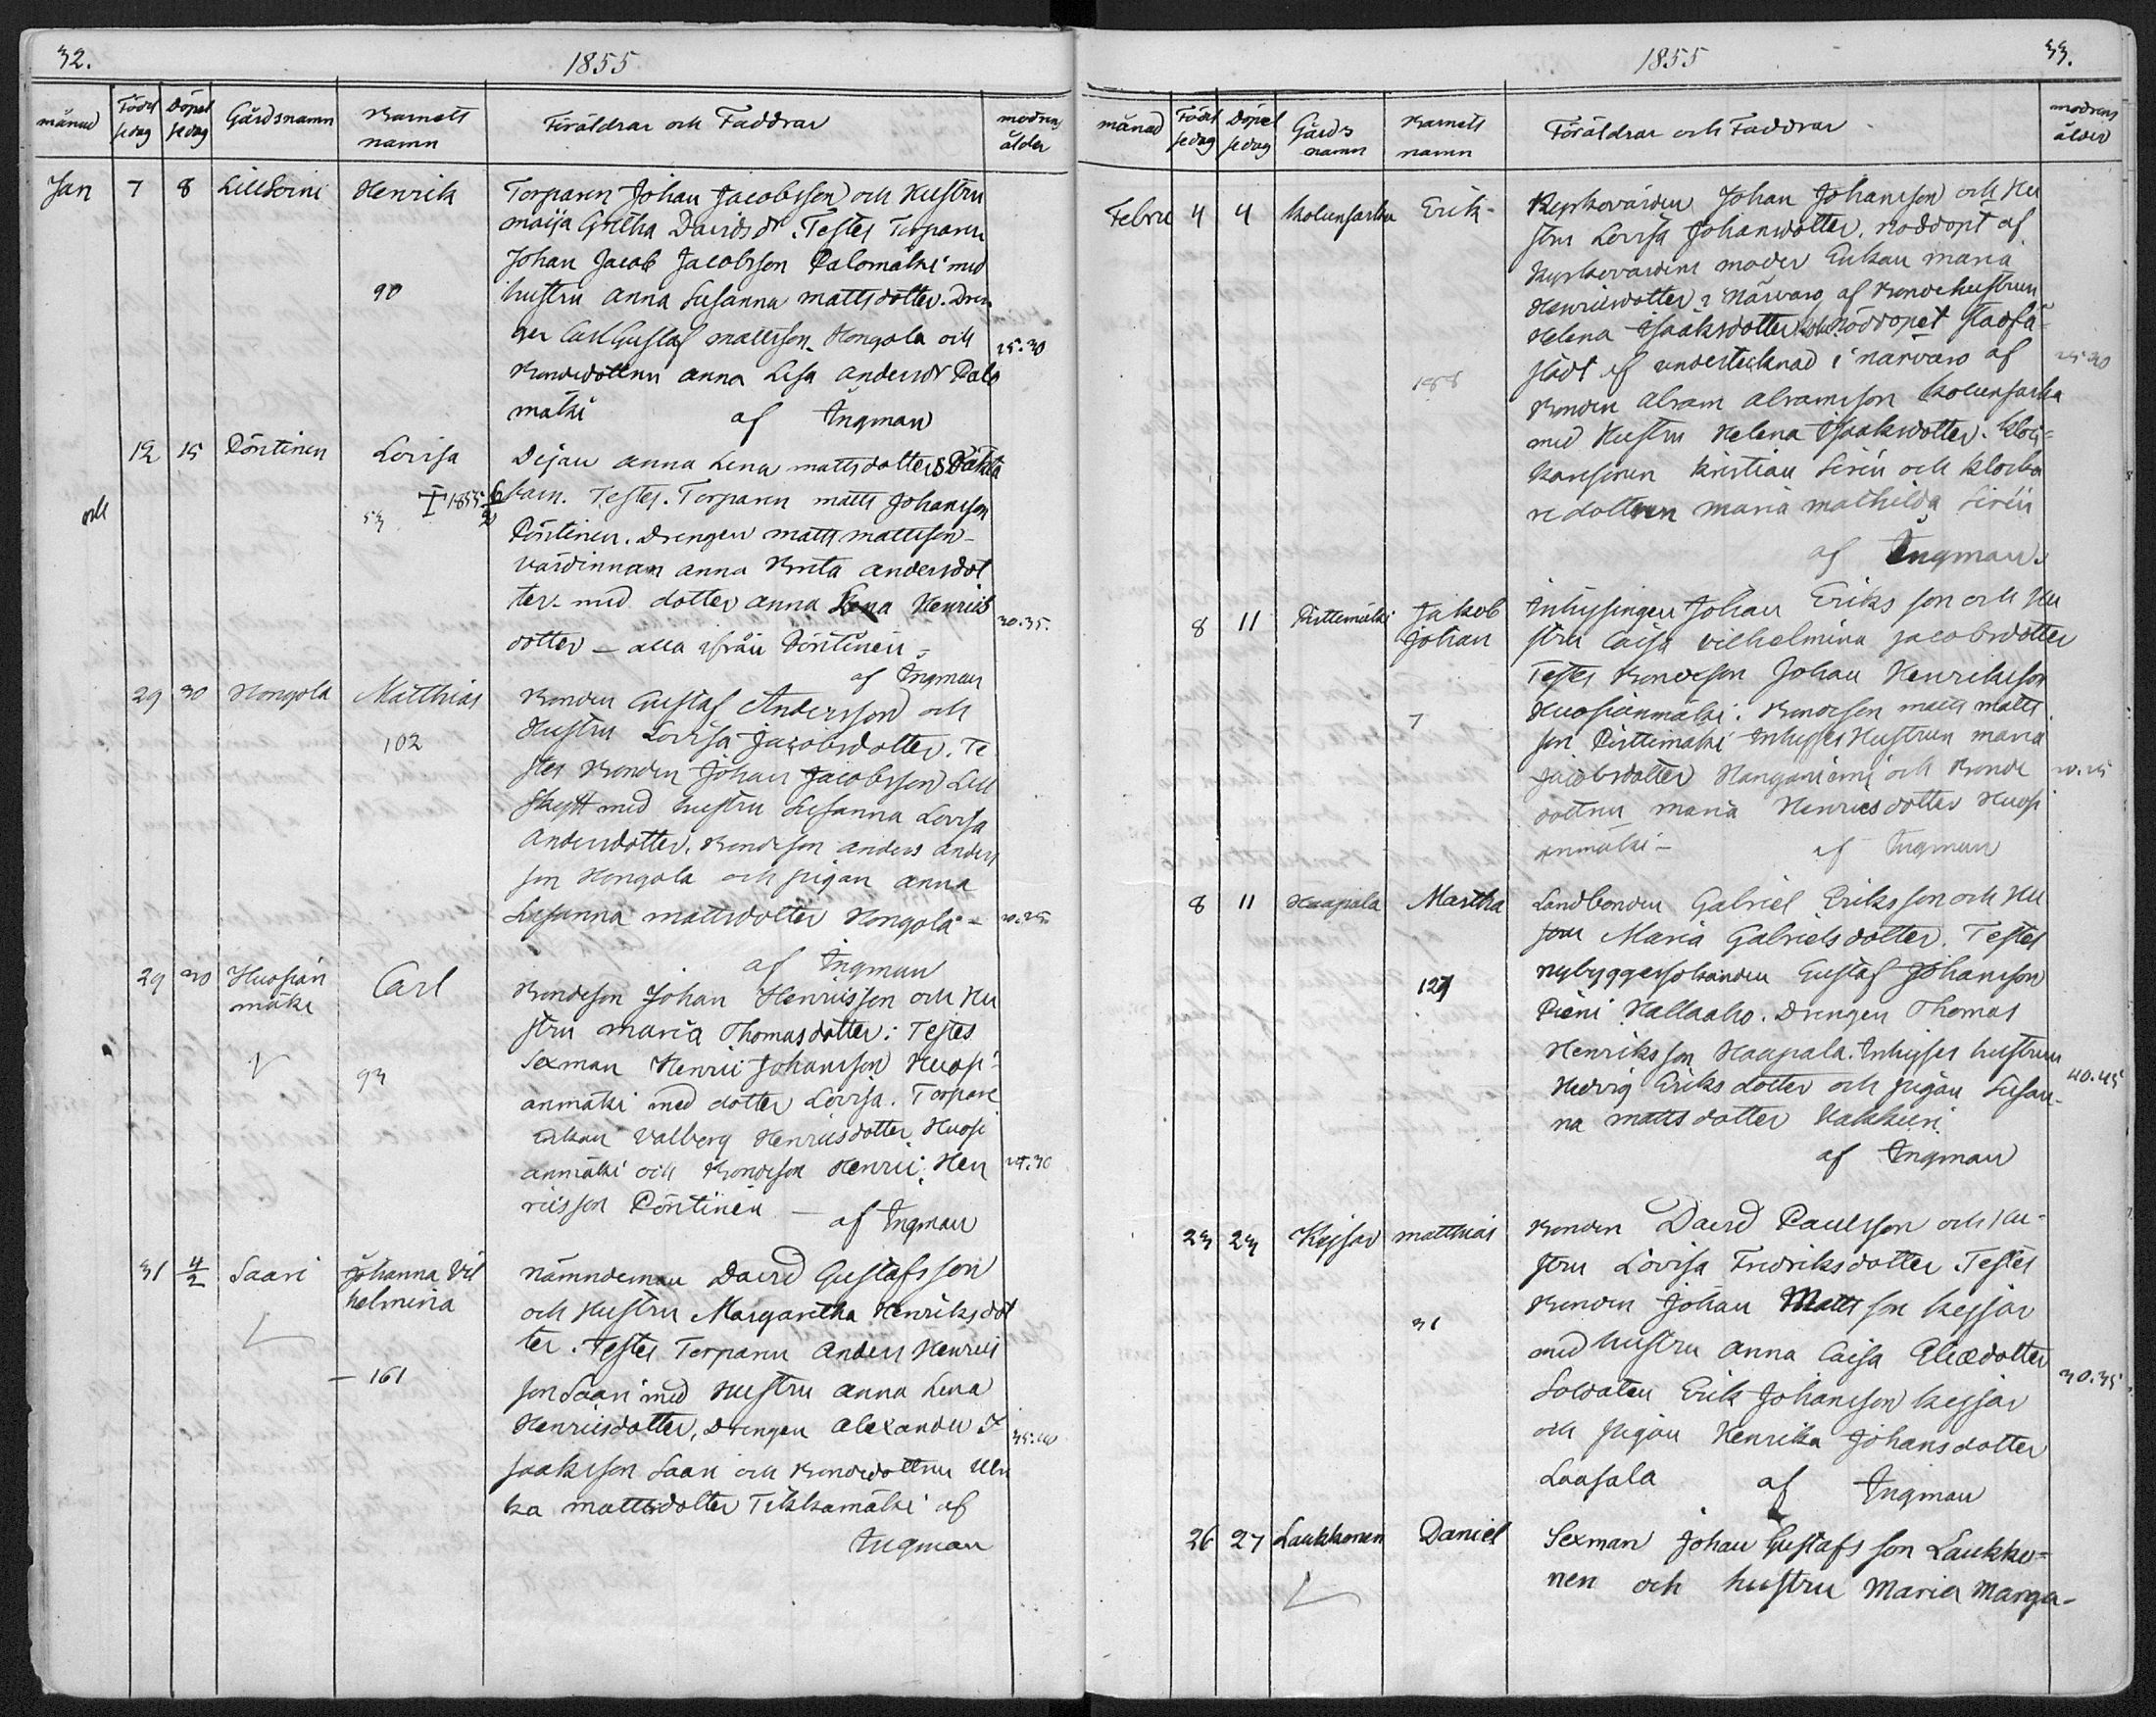 32.
1855
månad Född sedag Döpel sedag Gårdsnamn Barnets namn Föräldrar och Faddrar modrens ålder
Jan 7 8 LillSoini Henrik Torparen Johan Jacobsson och Hustru
maija Gretha Davidsdr. Testes Torparen
Johan Jacob Jacobsson Palomäki med
90 hustru anna Susanna mattsdotter. Dren
gen Carl Gustaf mattsson Hongola och 25.30
Bondedottren anna Lisa andersdr Palo
mäki af Ingman
12 15 Pöntinen Lovisa Pigan anna Lena mattsdotters Oäkta
och 53 1855 6/2 barn. Testes. Torparen matts Johansson
Pöntinen. Drengen matts mattsson
värdinnan anna Brita andersdot
ter med dotter anna Lena Henriks 30.35.
dotter – alla ifrån Pöntinen
af Ingman
29 30 Hongola Matthias Bonden Gustaf Andersson och
102 Hustru Lovisa Jacobsdotter. Te
stes Bonden Johan Jacobsson Lill
Skytt med hustru Susanna Lovisa
Andersdotter. Bondeson anders anders
son Hongola och pigan anna
Susanna mattsdotter Hongola –
af Ingman
29 30 Huosian mäki Carl Bondeson Johan Henriksson och Hu
stru maria Thomasdotter: Testes
93 Sexman Henric Johansson Huosi
anmäki med dotter Lovisa. Torpare
enkan Valborg Henricsdotter Huosi
anmäki och Bondeson Henric Hen
ricsson Pöntinen – af Ingman
31 4/2 Saari Johanna Vil helmina nämndeman David Gustafsson
och Hustru Margaretha Henriksdot
ter. Testes Torparen Anders Henrics
– 161 son Saari med Hustru anna Lena
Henricsdotter, Drengen Alexander I
saaksson Saari och Bondedottren Ulri
ka mattsdotter Tikkamäki af
Ingman
1855
33.
månad Född sedag Döpel sedag Gårds namn Barnets namn Föräldrar och Faddrar modrens ålder
Febru 4 4 Kolunsarka Erik Kyrkovärden Johan Johansson och Hu
stru Lovisa Johansdotter, nöddöpt af
Kyrkovärdens moder Enkan maria
Henricsdotter i närvaro af Bondehustrun
Helena Isaaksdotter, och Nöddopet stadfä
stadt af undertecknad i närvaro af
188 Bonden Abram Abramsson Kolunsarka
med Hustru Helena Isaaksdotter. Kloc
karesonen Kristian Sirén och Klocka
redottren maria mathilda Sirén
af Ingman.
8 11 Pirttimäki Jakob Johan Inhysingen Johan Eriksson och Hu
stru Caisa Vilhelmina Jacobsdotter
Testes Bondeson Johan Henriksson
7 Huosianmäki. Bondeson matts matts
son Pirttimäki Inhyses Hustrun maria
Jacobsdotter Hanganiemi och Bonde
dottren maria Henricsdotter Huosi
anmäki – af Ingman
8 11 Haapala Martha Landbonden Gabriel Eriksson och Hu
stru Maria Gabrielsdotter. Testes
nybyggessonen Gustaf Johansson
Pieni Hallaaho. Drengen Thomas
Henriksson Haapala. Inhyses hustrun
Hedvig Eriksdotter och pigan Susan- 40.45
na mattsdotter Kakkuri
af Ingman
23 23 Keisar matthias Bonden David Paulsson och Hu-
stru Lovisa Fredriksdotter. Testes
31 Bonden Johan Matts son Keisar
med hustru anna Caisa Eliædotter 30.35
Soldaten Erik Johansson Keisar
och pigan Henrika Johansdotter
Laasala af Ingman
26 27 Laukkonen Daniel Sexman Johan Gustafs son Laukko=
nen och hustru Maria Marga-